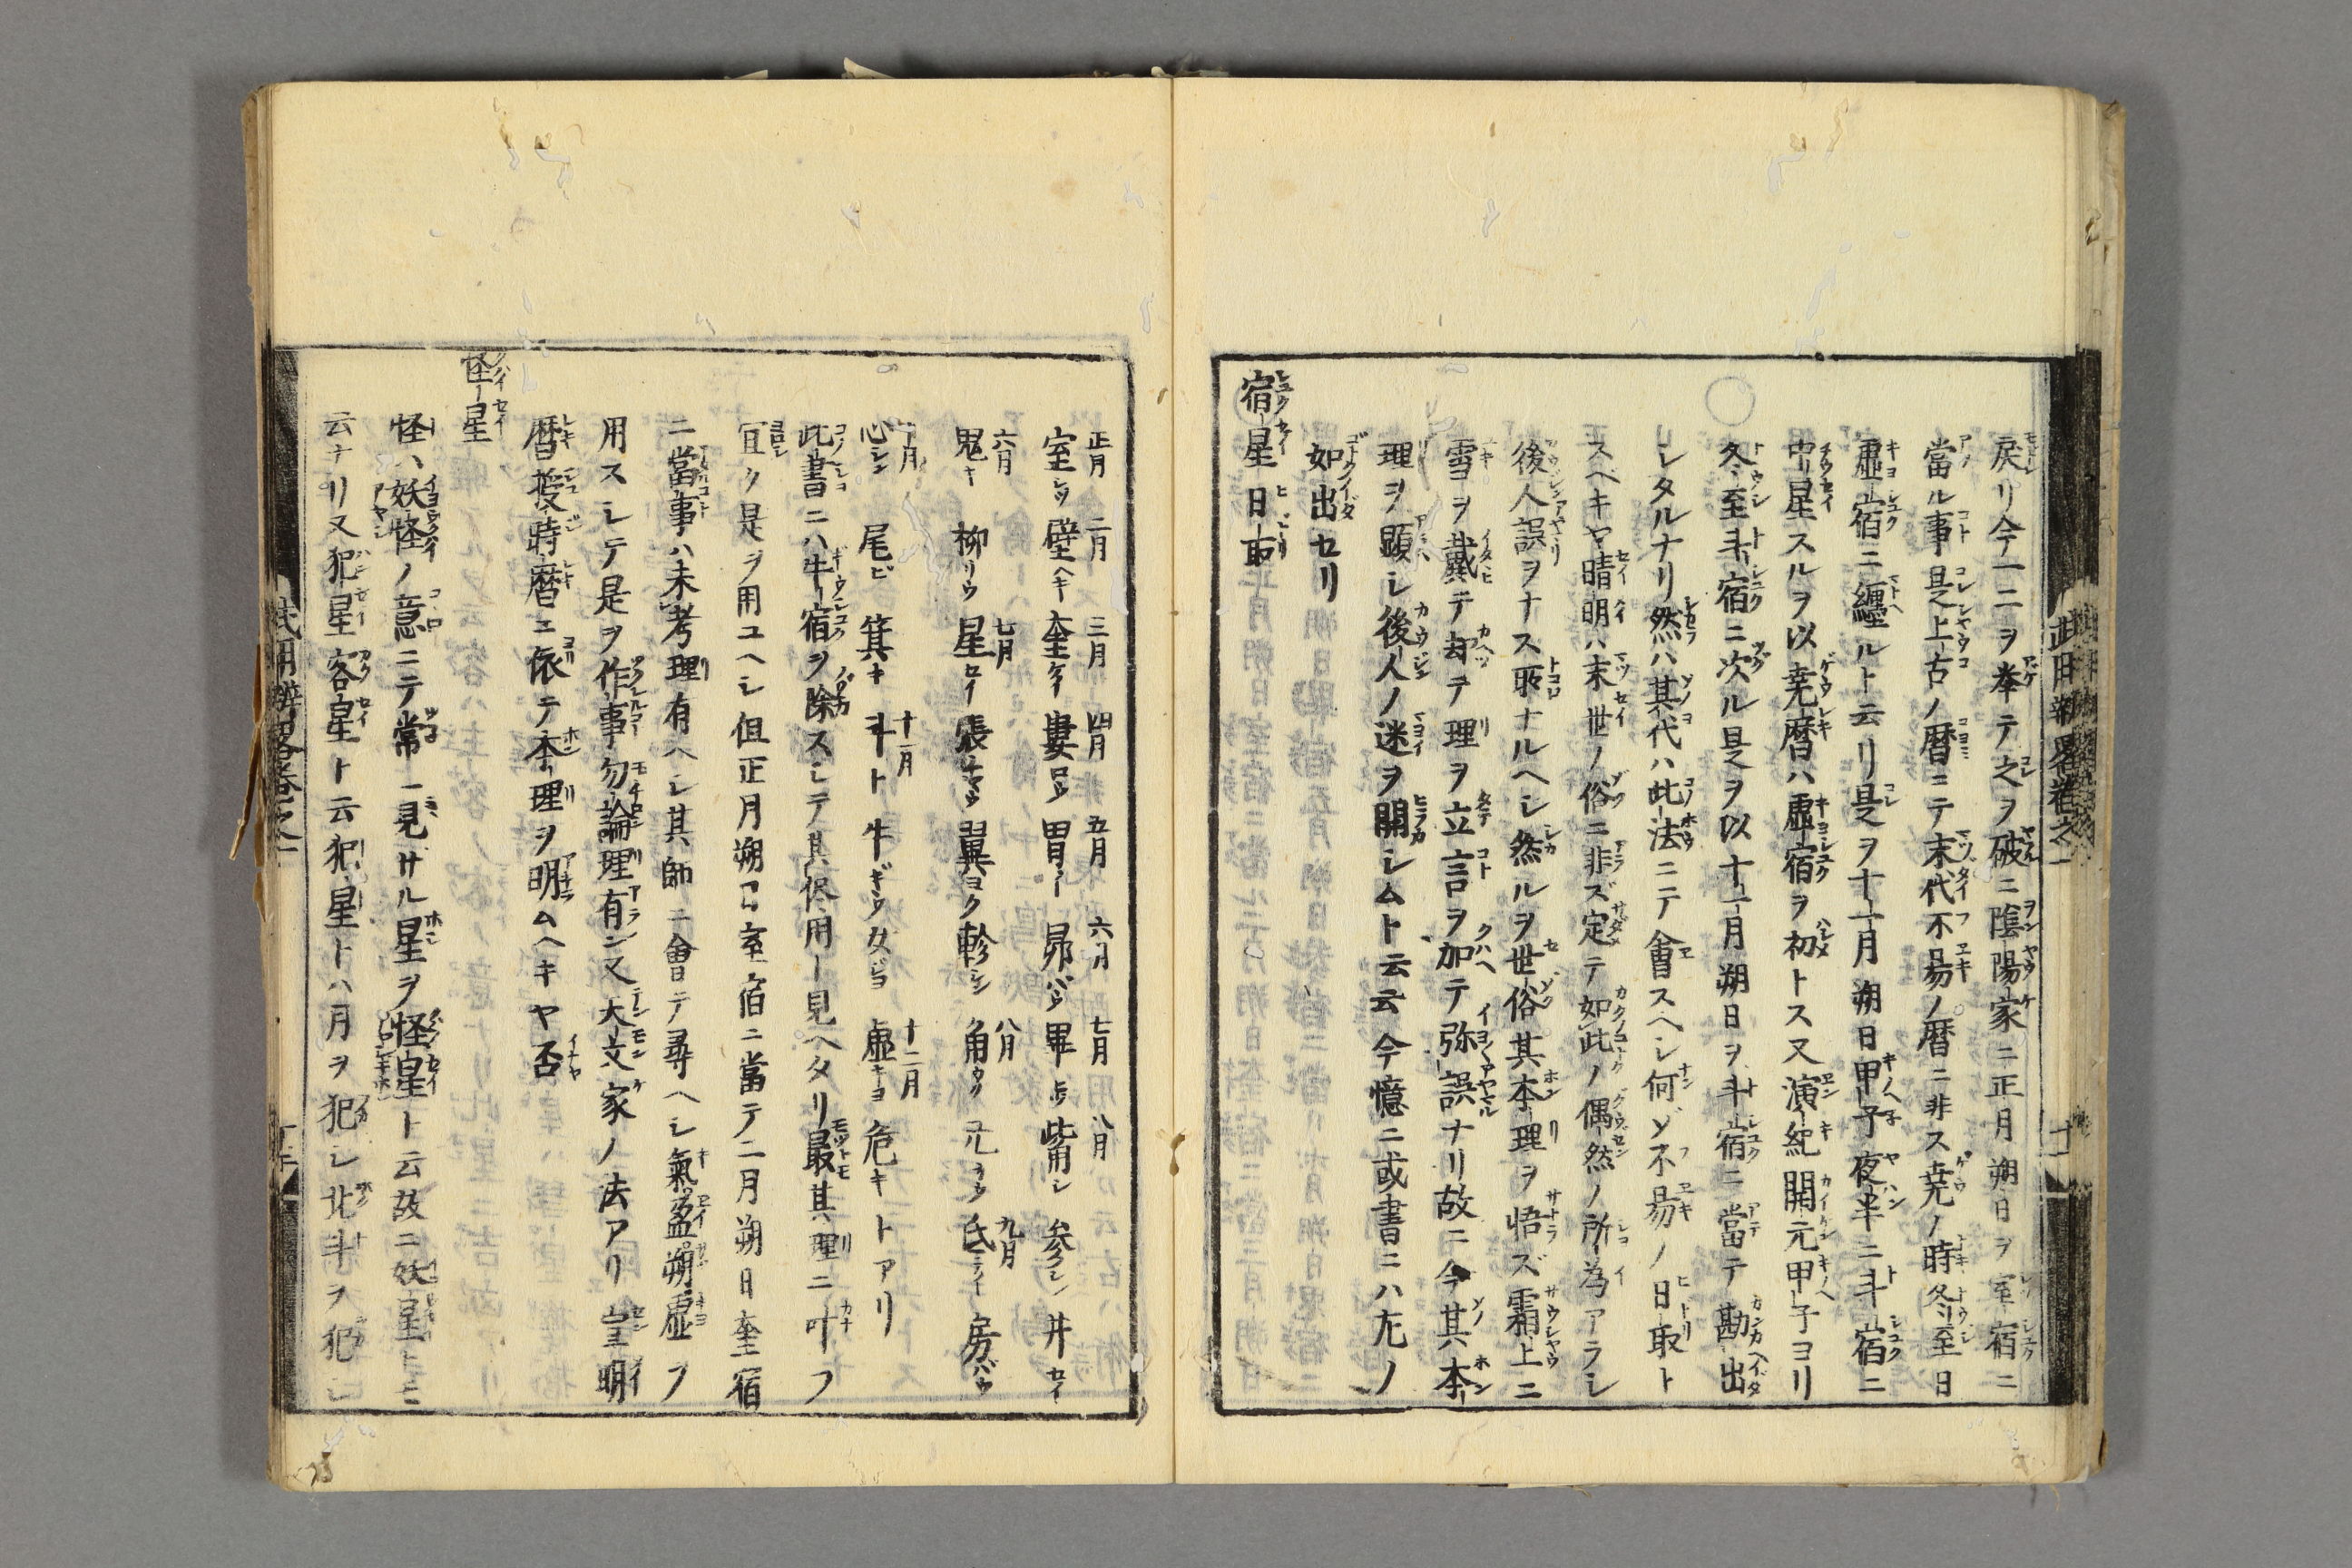 戻リ今一二ヲ挙テ之ヲ破ニ陰陽家ニ正月朔日ヲ室宿ニ
當ル事是上古ノ暦ニテ末代不易ノ暦ニ非ス堯ノ時冬至日
虚宿ニ纏ルト云リ是ヲ十一月朔日甲子夜半ニ斗宿ニ
中星スルヲ以堯暦ハ虚宿ヲ初トス又演紀開元甲子ヨリ
冬至斗宿ニ次ル是ヲ以十一月朔日ヲ斗宿ニ當テ勘出
シタルナリ然ハ其代ハ此法ニテ會スヘシ何ゾ不易ノ日取ト
スベキヤ晴明ハ末世ノ俗ニ非ズ定テ如此ノ偶然ノ所為アラシ
後人誤ヲナス所ナルヘシ然ルヲ世俗其本理ヲ悟ズ霜上ニ
雪ヲ戴テ却テ理ヲ立言ヲ加テ弥誤ナリ故ニ今其本
理ヲ顕シ後人ノ迷ヲ開シムト云云今憶ニ或書ニハ左ノ
如出セリ
宿星日取
正月 二月 三月 四月 五月 六月 七月 八月
室シツ壁ヘキ奎ケイ婁ロウ胃イ昴バウ畢ヒツ觜シ参シン井セイ
六月 七月 八月 九月
鬼キ柳リウ星セイ張チヤウ翼ヨク軫シン角カク亢カウ氐テイ房バウ
十月 十一月 十二月
心シン尾ビ箕キ斗ト牛ギウ女ヂヨ虚キヨ危キトアリ
此書ニハ牛宿ヲ除スシテ其侭用ー見ヘタリ最其理ニ叶フ
宜ク是ヲ用ユヘシ但正月朔日室宿ニ當テ二月朔日奎宿
ニ當事ハ未考理有ヘシ其師ニ會テ尋ヘシ氣盈朔虚フ
用スシテ是ヲ作事勿論理有ン又天文家ノ法アリ宣明
暦授時暦ニ依テ本理ヲ明ムヘキヤ否
怪星
怪ハ妖怪ノ意ニテ常ー見サル星ヲ怪星ト云故ニ妖星トモ
云ナリ又犯星客星ト云犯星トハ月ヲ犯シ北斗ヲ犯シ